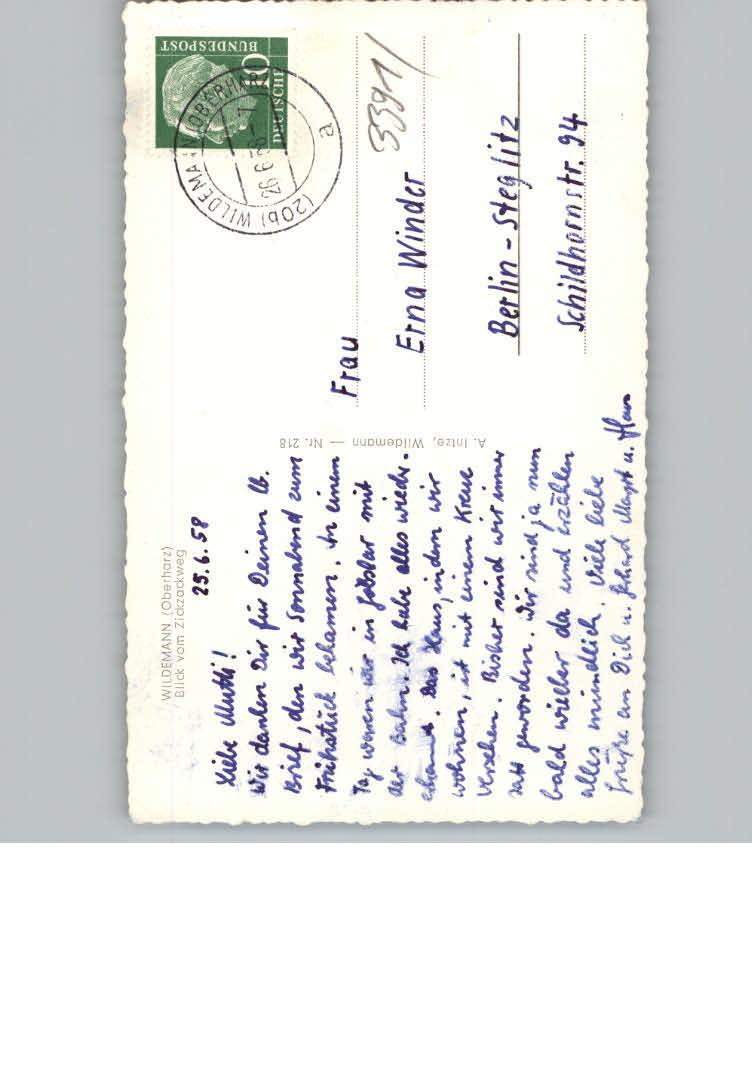 WILDEMANN (Oberharz)
Blick vom Zickzackweg
25.6.58
Liebe Mutti!
Wir danken Dir für Deinen lb.
Brief, den wir Sonnabend zum
Frühstück bekamen. An einem
Tag waren wir in Goslar mit
der Bahn. Ich habe alles wieder-
erkannt. Das Haus, in dem wir
wohnen, ist mit einem Kreuz
versehen. Bisher sind wir immer
satt geworden. Wir sind ja nun
bald wieder da und erzählen
alles mündlich. Viele liebe
Grüße an Dich u. Gerhard u. Hans
A. Intze, Wildemann — Nr. 218
DEUTSCHE
BUNDESPOST
10
(20b) WILDEMANN (OBERHARZ)
26.6.58
a
3391/
Frau
Erna Winder
Berlin-Steglitz
Schildhornstr. 94